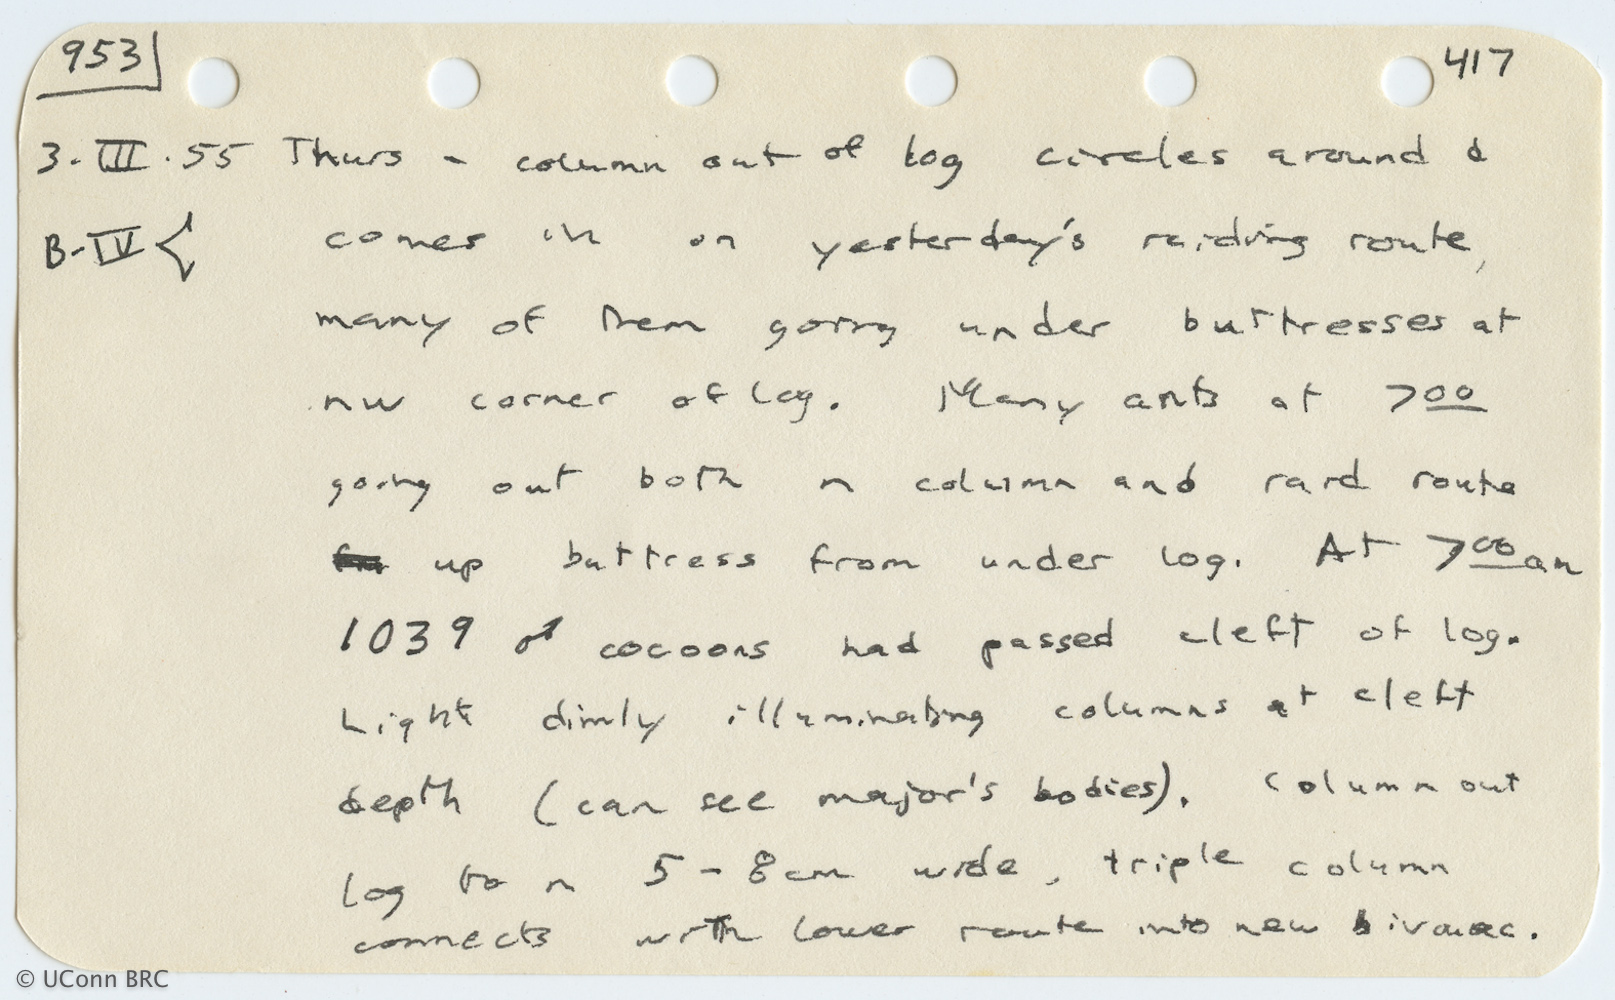 953 417
3.III.55 Thurs - column out of log circles around &
B-IV< comes in on yesterday's raiding route,
many of them going under buttresses at
nw corner of log. Many ants at 700
going out both n column and raid route
up buttress from under log. At 700 am
1039 ♂ cocoons had passed cleft of log.
Light dimly illuminating columns at cleft
depth (can see major's bodies). Column out
log to n 5-8cm wide, triple column
connects with lower route into new bivouac.
© UConn BRC